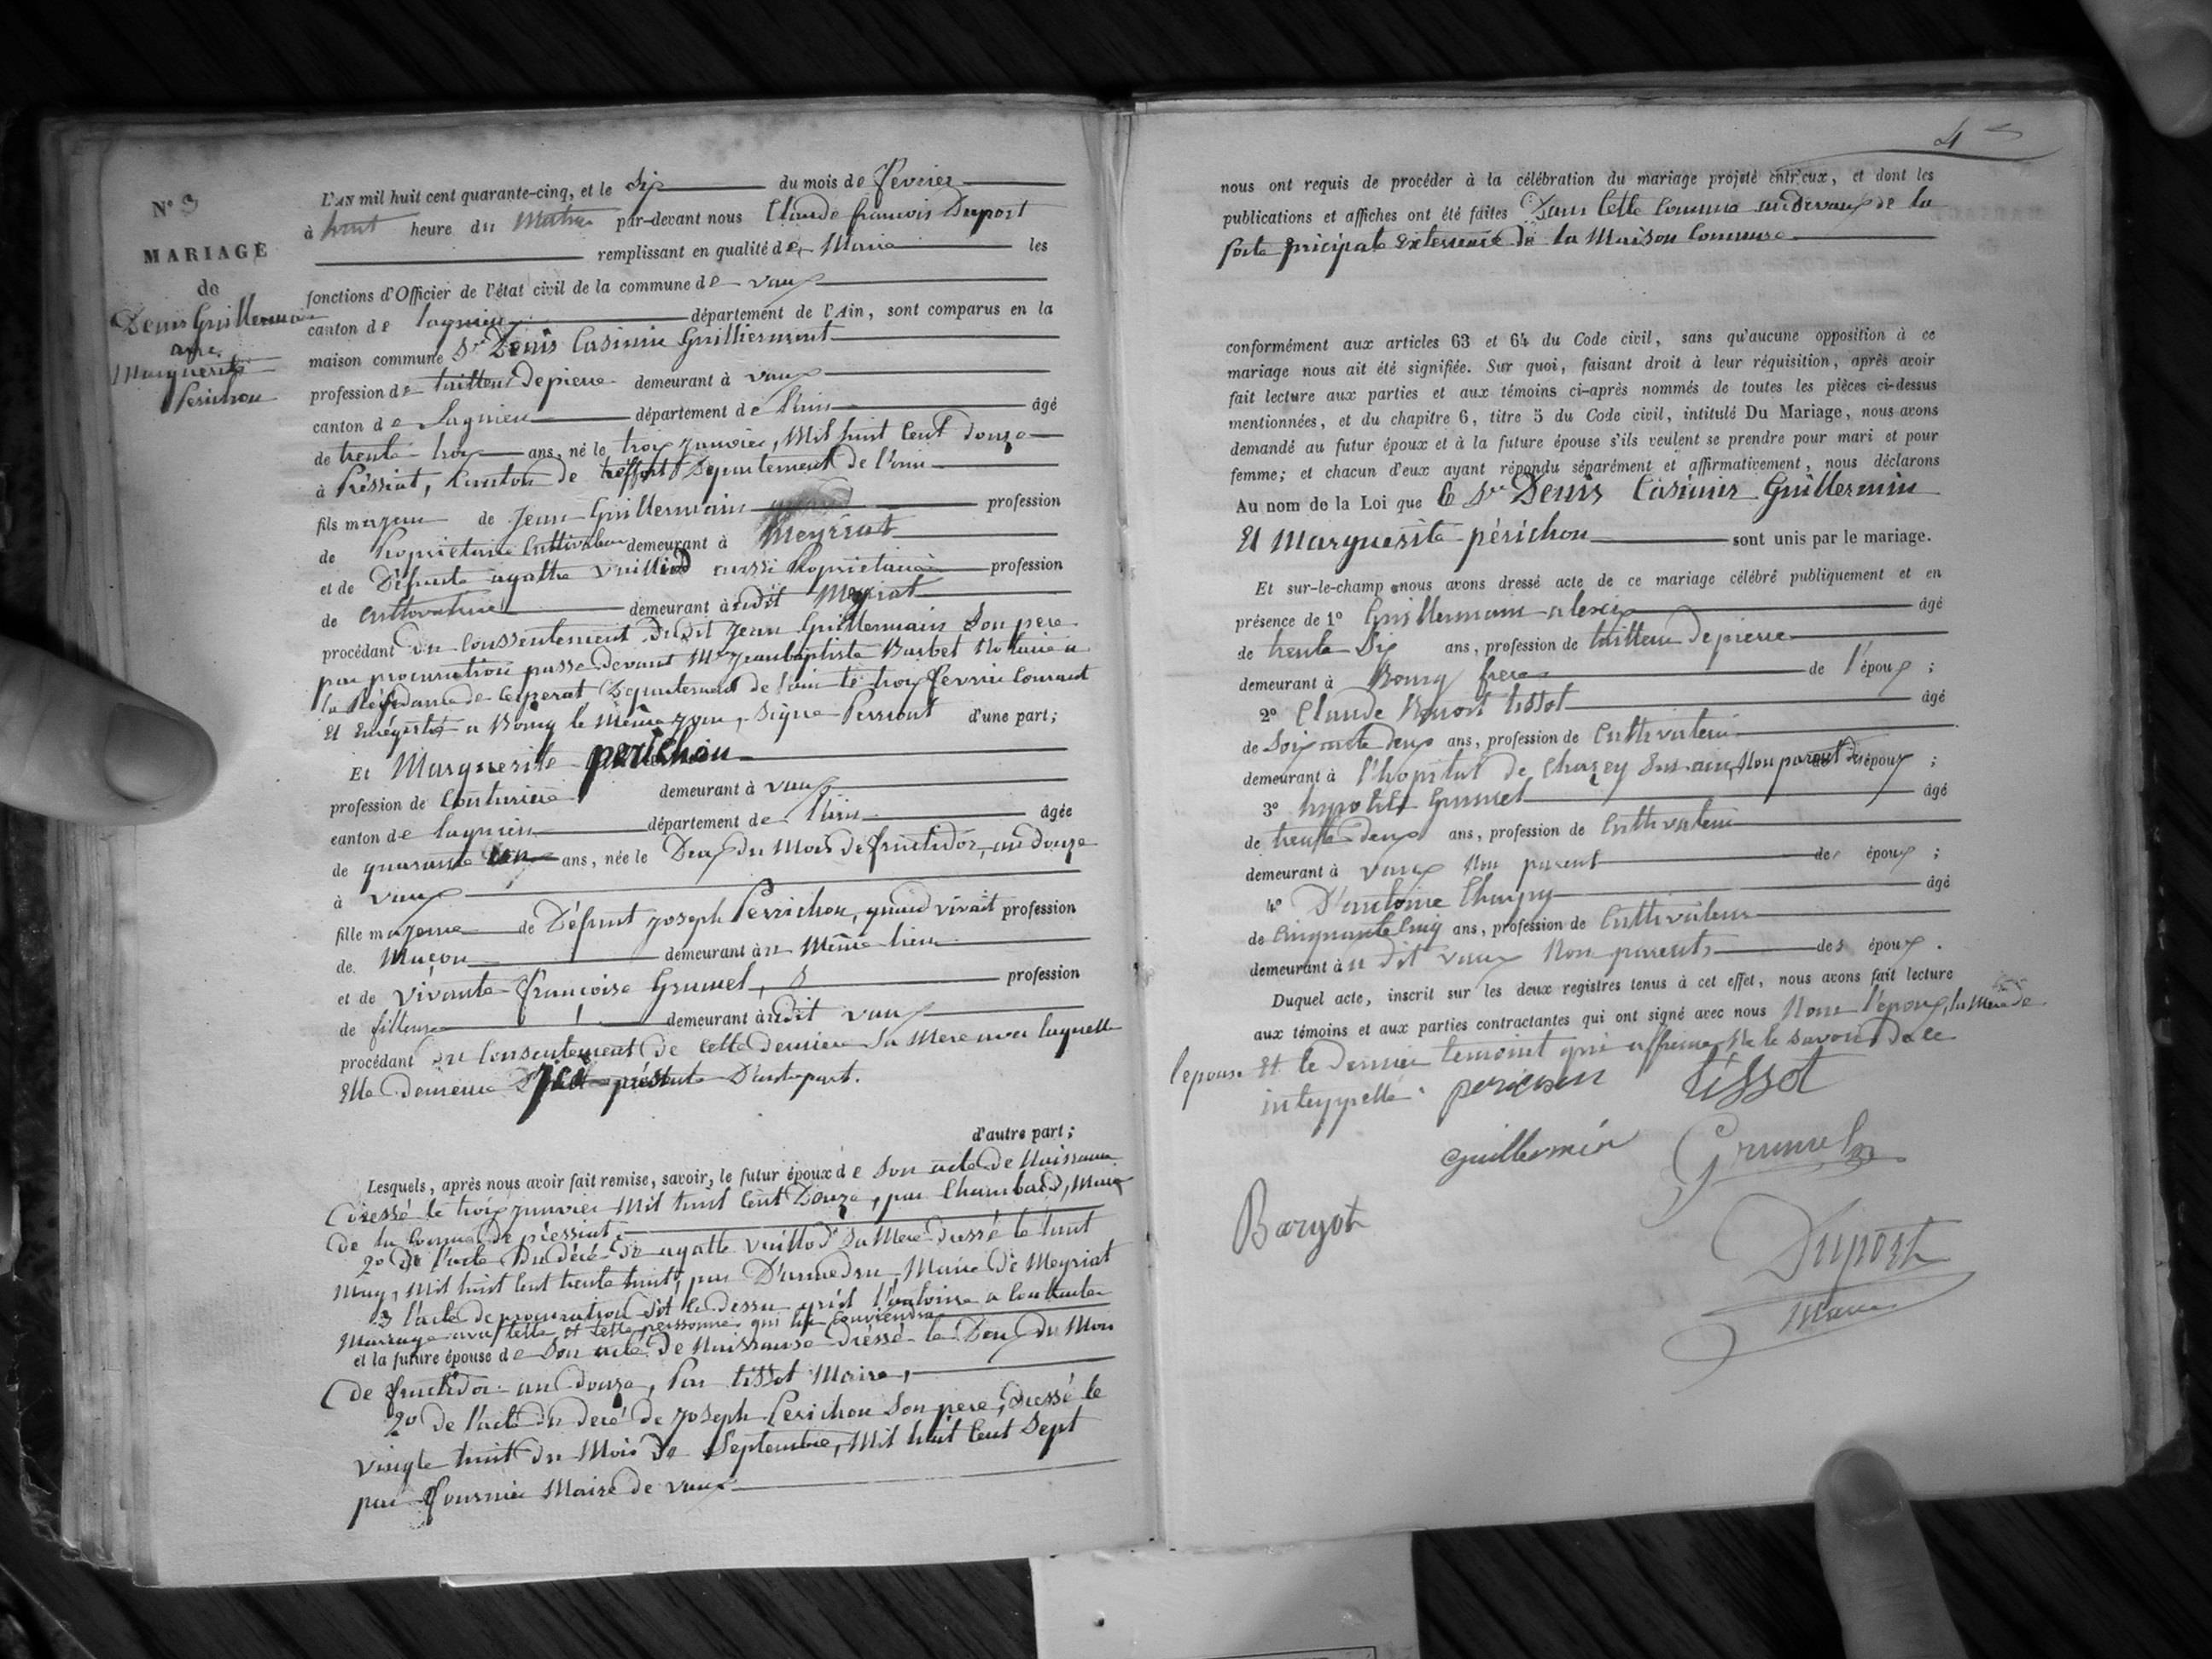 N° 3
MARIAGE
de
Denis Guillermain
avec
Marguerite
Perichon
L'AN mil huit cent quarante-cinq, et le six du mois de fevrier
à huit heure du Matin par-devant nous Claude francois Duport
remplissant en qualité de Maire les
fonctions d'Officier de l'état civil de la commune de vaux
canton de lagnieu département de l'Ain, sont comparus en la
maison commune Sr Denis Casimir Guilliermint
profession de tailleur de pierre demeurant à vaux
canton de Lagnieu département de l'ain âgé
de trente trois ans, né le trois janvier, Mil huit Cent douze
à Préssiat, Canton de treffort Département de l'ain
fils majeur de Jean Guillermain profession
de Propriétaire Cultivateur demeurant à Meyriat
et de Défunte agathe vuilliod aussi Propriétaire profession
de Cultivatrice demeurant à udit Meyriat
procédant du Conssentement dudit Jean Guillermain Son pere
par procuration passé devant Me Jean baptiste Barbet Notaire a
la Résidance de Ceyzerat Département de l'ain le trois fevrier Courant
Et Enrégistré a Bourg le même jour, Signé Perriout d'une part;
Et Marguerite perichon
profession de Couturiere demeurant à vaux
canton de lagnieu département de l'ain âgée
de quarante ans, née le Deux du Mois de fructidor, an douze
à vaux
fille majeure de Défunt joseph Perrichon, quand vivait profession
de Maçon demeurant à u Même lieu
et de vivante francoise Grumel, profession
de filleuse demeurant à udit vaux
procédant du Consentement de Cette derniere Sa Mere avec laquelle
Elle demeure D'ici présente D'autre part.
d'autre part;
Lesquels, après nous avoir fait remise, savoir, le futur époux de Son acte de Naissance
Dressé le trois janvier Mil huit Cent Douze, par Chambard, Maire
De la Comune de préssiat,
2° de l'acte Du décé de agathe vuillod Sa Mere dressé le huit
May, Mil huit Cent trente huit, par D'armedru, Maire De Meyriat
3 l'acte de procuration dit Ci dessu qui l'autorise a Contracter
Marriage avec telle et telle perssonne qui lui Conviendra
et la future épouse de Son acte De Naissance Dréssé le Deux du Mois
De fructidor an Douze, Par tissot Maire,
2° De l'acte du decé de joseph Perichon Son pere, Dressé le
vingte huit du Mois De Septembre, Mil huit Cent Sept
par fournier Maire de vaux
4
nous ont requis de procéder à la célébration du mariage projeté entr'eux, et dont les
publications et affiches ont été faites Dans Cette Commune au devant de la
porte pricipale Exterieure de la Maison Commune
conformément aux articles 63 et 64 du Code civil, sans qu'aucune opposition à ce
mariage nous ait été signifiée. Sur quoi, faisant droit à leur réquisition, après avoir
fait lecture aux parties et aux témoins ci-après nommés de toutes les pièces ci-dessus
mentionnées, et du chapitre 6, titre 5 du Code civil, intitulé Du Mariage, nous avons
demandé au futur époux et à la future épouse s'ils veulent se prendre pour mari et pour
femme; et chacun d'eux ayant répondu séparément et affirmativement, nous déclarons
Au nom de la Loi que le Sr Denis Casimir Guillermin
Et Marguerite périchon sont unis par le mariage.
Et sur-le-champ nous avons dressé acte de ce mariage célébré publiquement et en
présence de 1° Guillermain alexis âgé
de trente Six ans, profession de tailleur de pierre
demeurant à Bourg frere de l'époux;
2° Claude Benoit tissot âgé
de Soixante deux ans, profession de Cultivateur
demeurant à l'hopital de Chazey Sur ain, Non parent des époux;
3° hypolite Grumel âgé
de trente deux ans, profession de Cultivateur
demeurant à vaux Non parent des époux;
4° D'antoine Chagny âgé
de Cinquante Cinq ans, profession de Cultivateur
demeurant à u dit vaux Non parents des époux.
Duquel acte, inscrit sur les deux registres tenus à cet effet, nous avons fait lecture
aux témoins et aux parties contractantes qui ont signé avec nous Non l'epoux, la Mere de
l'epouse Et le Dernier temoint qui affirme Ne le Savoir De ce
interppellé. perichon tissot
Guillermin Grumel
Bargot
Duport
Maire